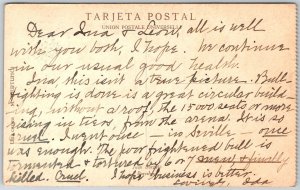 TARJETA POSTAL
UNION POSTALE UNIVERSELLE
Dear Ina & Leon, all is well
with you both, I hope. We continue
in our usual good health.
Ina this isn't a true picture. Bull
fighting is done in a great circular build
ing, without a roof, the 15000 seats or more
rising in tiers from the arena. It is so
cruel. I went once — in Seville — once
was enough. The poor frightened bull is
tormented & tortured by 6 or 7 men, & finally
killed. Cruel. I hope business is better.
Lovingly, Ida